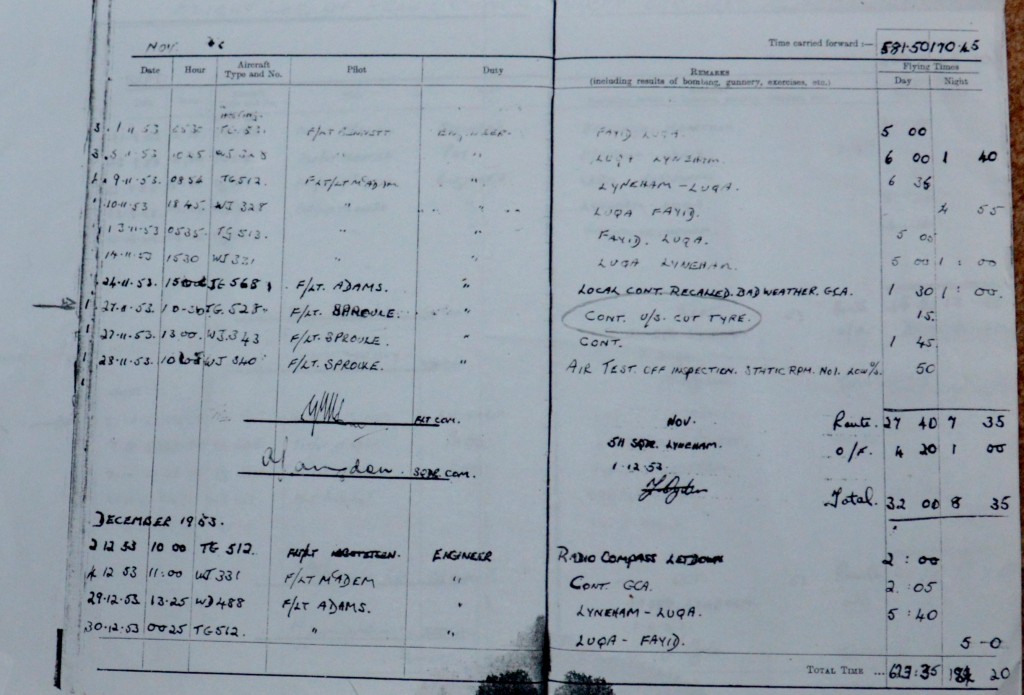 NOV. Time carried forward :— 581·50 170·45
Date Hour Aircraft Type and No. Pilot Duty REMARKS (including results of bombing, gunnery, exercises, etc.) Flying Times Day Night
1·11·53 F/LT ENGINEER FAYID LUQA. 5 00
1045 WJ 328 " " LUQA LYNEHAM. 6 00 1 40
9·11·53 TG512 FLT/LT McADAM " LYNEHAM – LUQA. 6 35
10·11·53 1845 WJ 328 " " LUQA FAYID. 4 55
13·11·53 0535 TG513 " " FAYID. LUQA. 5 05
14·11·53 1530 WJ 331 " " LUQA LYNEHAM. 5 00 1 : 00
24·11·53. TG 568 F/LT. ADAMS. " LOCAL CONT. RECALLED. BAD WEATHER. GCA. 1 30 1 : 00.
1 27·11·53 TG. 528 F/LT. SPROULE. " CONT. U/S. CUT TYRE. 15.
1 27·11·53 1300. WJ. 343 F/LT. SPROULE. " CONT. 1 45.
1 28·11·53. WJ 340 F/LT. SPROULE. " AIR TEST. OFF INSPECTION. STATIC RPM. No1. LOW%. 50
FLT. COM. NOV. Route. 27 40 7 35
511 SQDR. LYNEHAM. O/F. 4 20 1 00
SQDR. COM. 1·12·53
Total. 32 00 8 35
DECEMBER 1953.
2 12 53 10 00 TG 512. F/LT ENGINEER RADIO COMPASS LETDOWN 2 : 00
12 53 11:00 WJ 331 F/LT McADEM " CONT. GCA. 2 : 05
29·12·53 13·25 WD 488 F/LT ADAMS. " LYNEHAM – LUQA. 5 : 40
30·12·53 0025 TG512. " " LUQA – FAYID. 5 – 0
TOTAL TIME ... 623:35 20